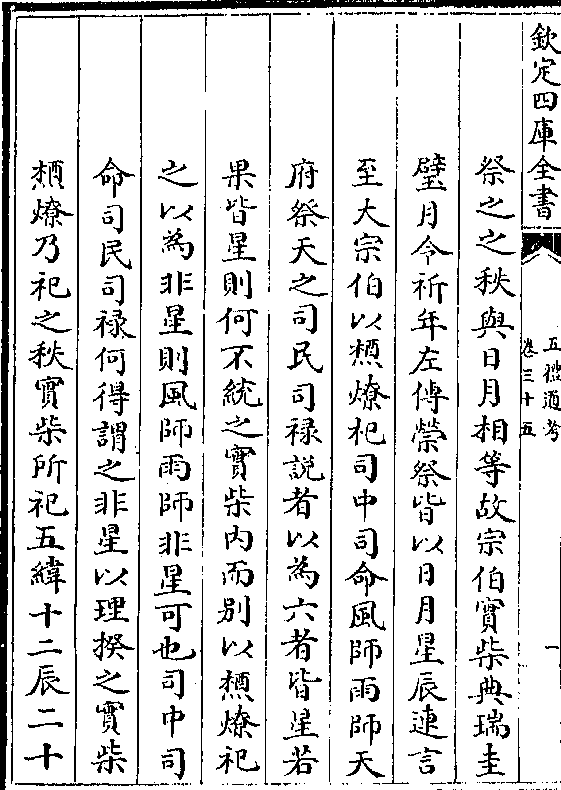 欽定四庫全書
五禮通考
卷三十五
一
祭之之秩與日月相等故宗伯實柴典瑞圭
璧月令祈年左傳禜祭皆以日月星辰連言
至大宗伯以槱燎祀司中司命風師雨師天
府祭天之司民司禄說者以為六者皆星若
果皆星則何不統之實柴內而别以槱燎祀
之以為非星則風師雨師非星可也司中司
命司民司禄何得謂之非星以理揆之實柴
槱燎乃祀之秩實柴所祀五緯十二辰二十